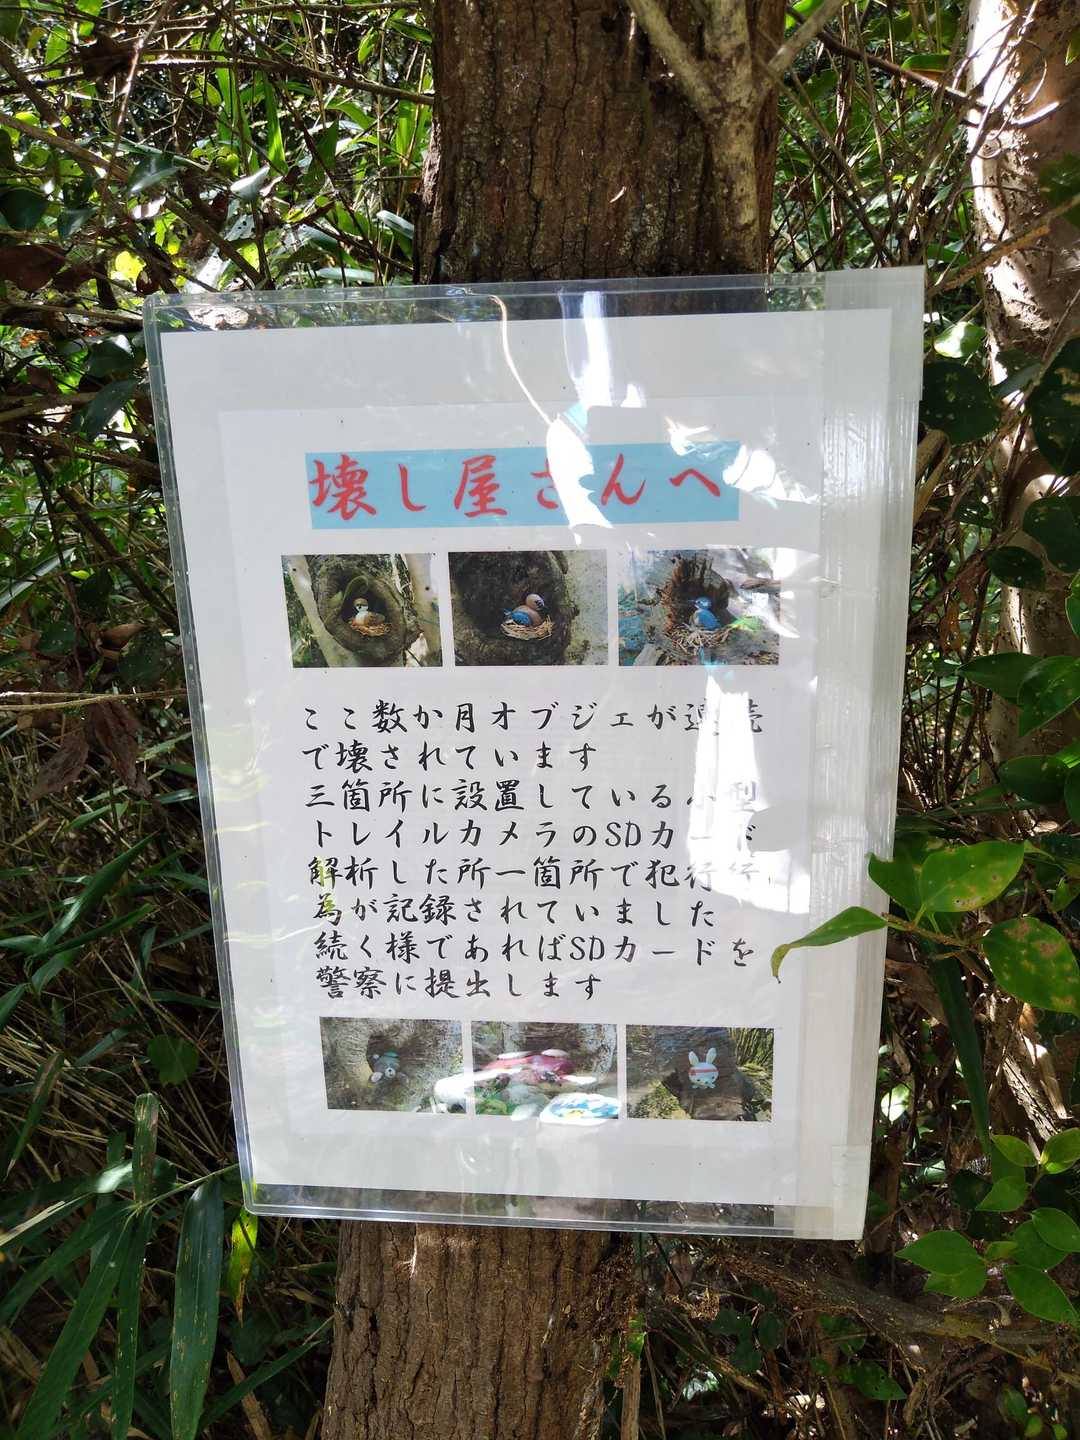 壊し屋さんへ
ここ数か月オブジェが連続
で壊されています
三箇所に設置している小型
トレイルカメラのSDカード
解析した所一箇所で犯行行
為が記録されていました
続く様であればSDカードを
警察に提出します